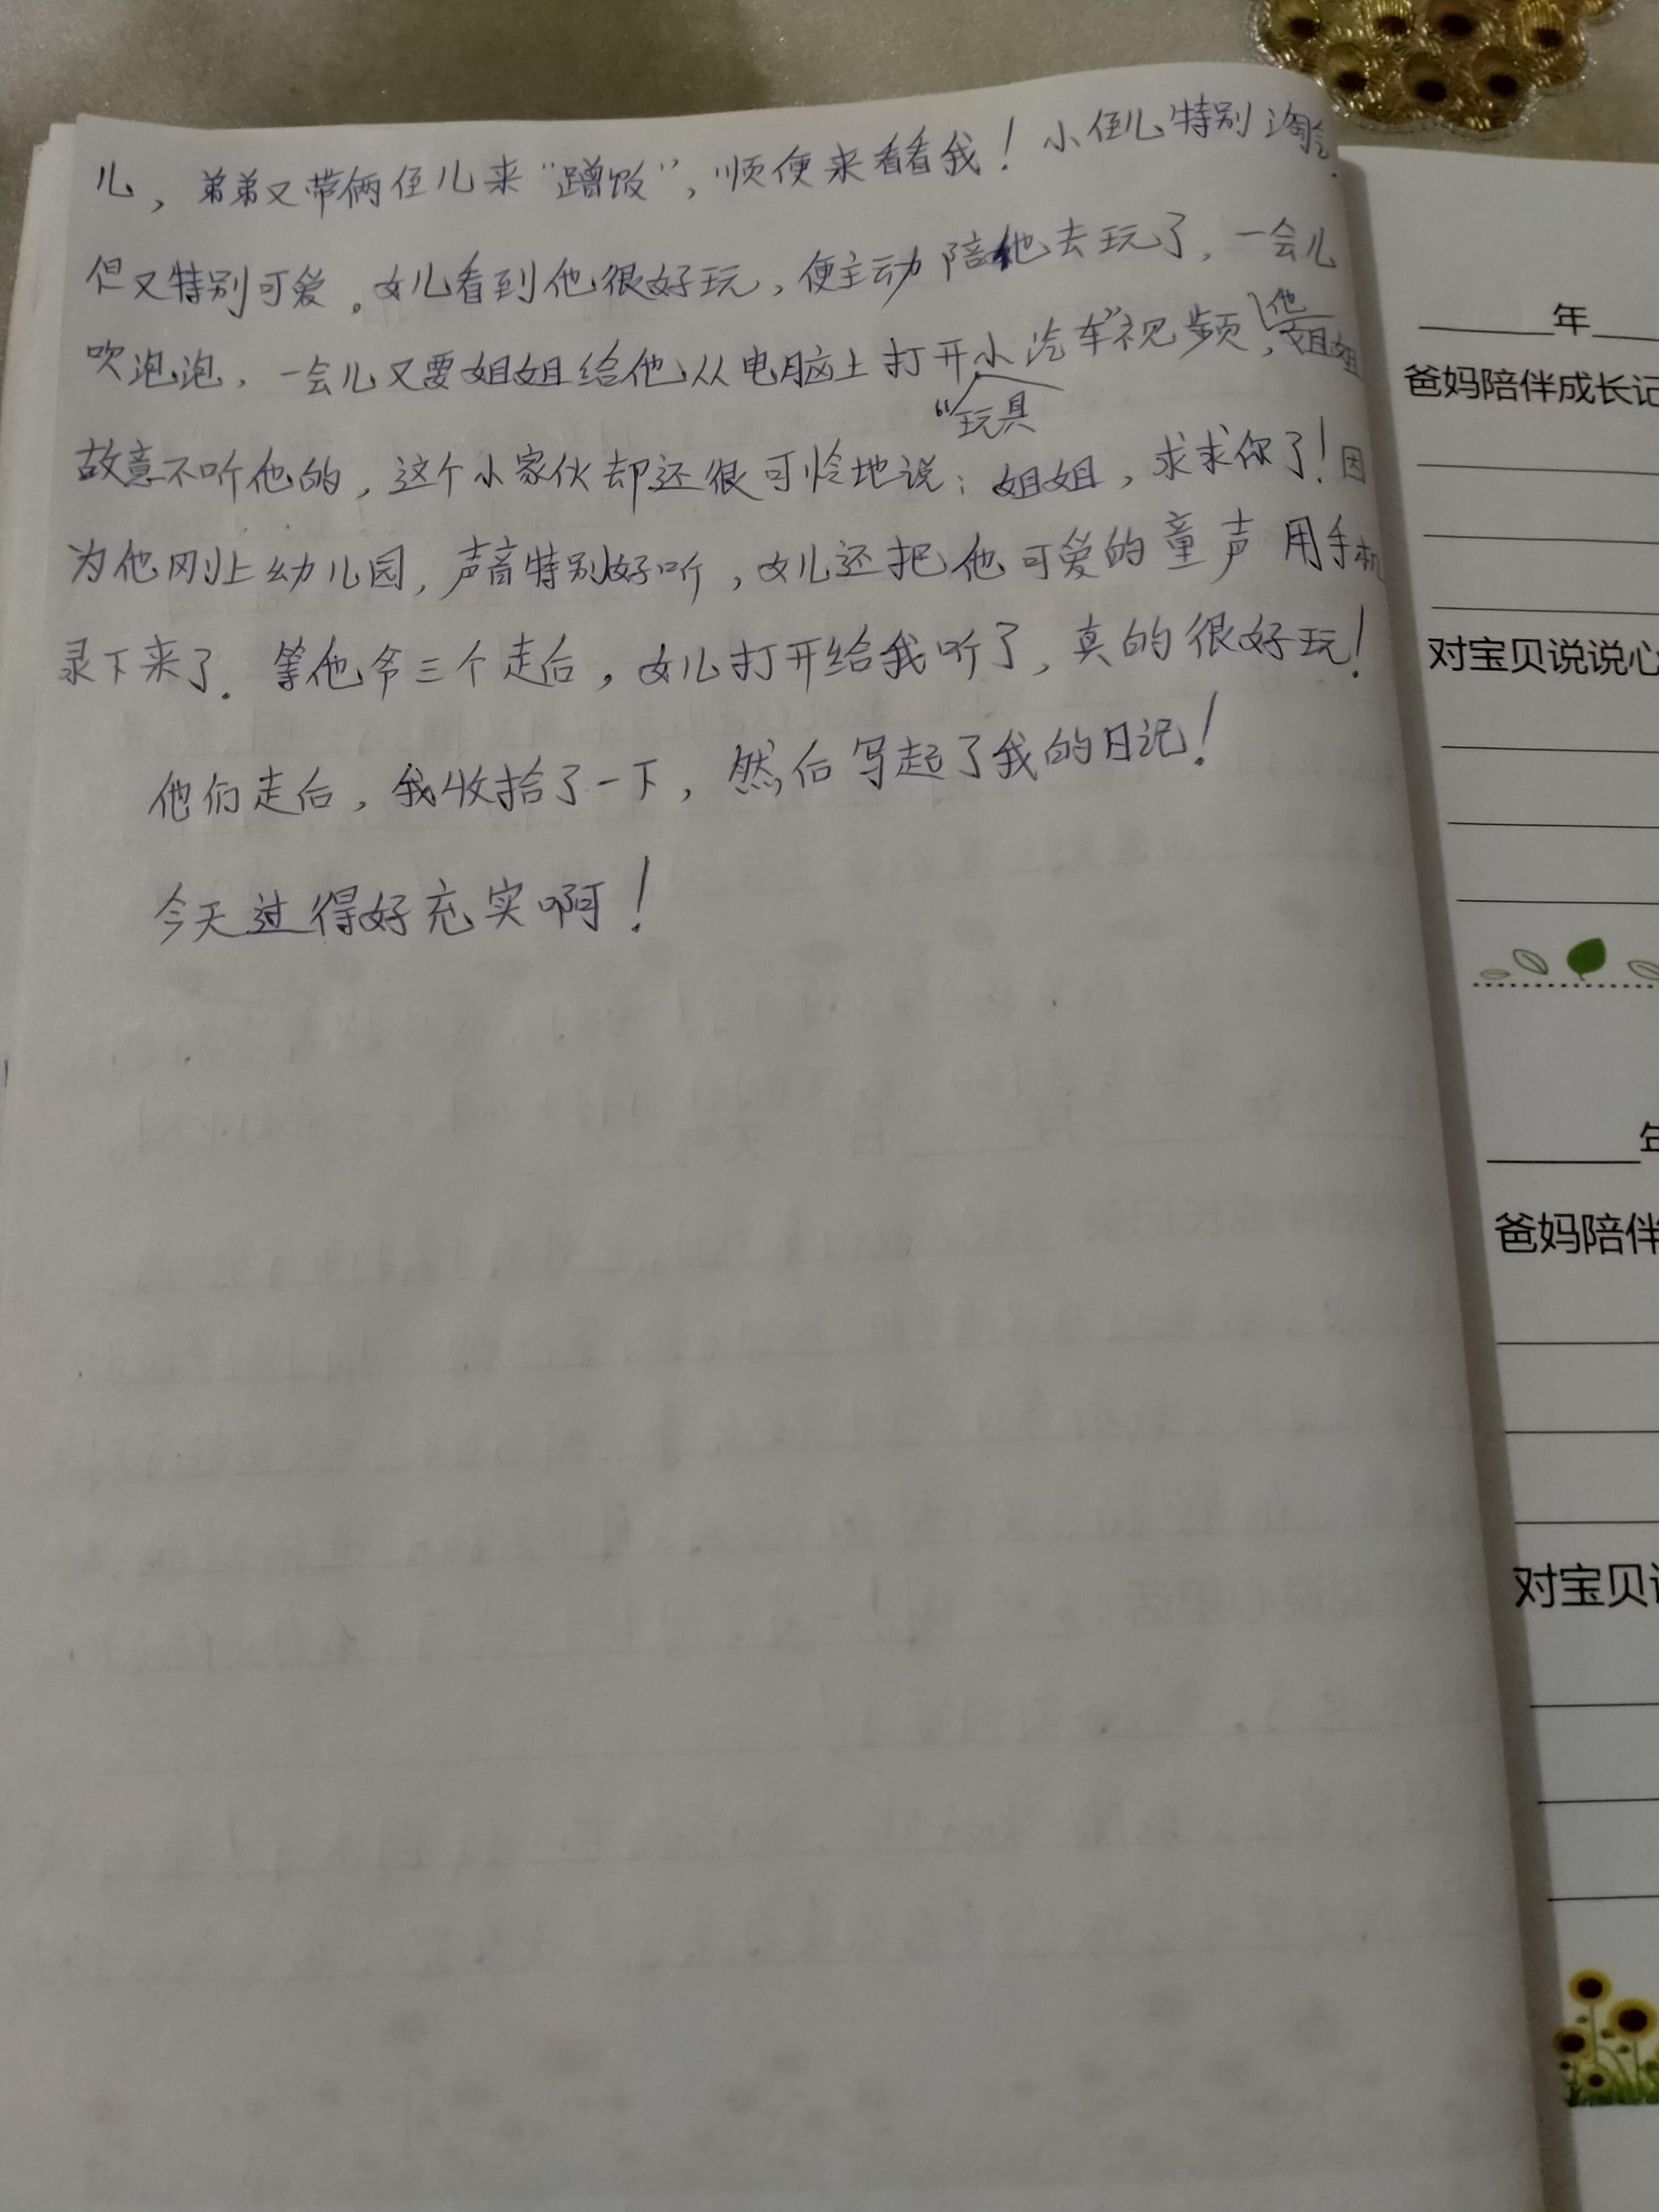 儿，弟弟又带俩侄儿来“蹭饭”，顺便来看看我！小侄儿特别淘气
但又特别可爱。女儿看到他很好玩，便主动陪他去玩了，一会儿
吹泡泡，一会儿又要姐姐给他从电脑上打开“玩具小汽车”视频，他姐姐
故意不听他的，这个小家伙却还很可怜地说：姐姐，求求你了！因
为他刚上幼儿园，声音特别好听，女儿还把他可爱的童声用手机
录下来了。等他爷三个走后，女儿打开给我听了，真的很好玩！
他们走后，我收拾了一下，然后写起了我的日记！
今天过得好充实啊！
年
爸妈陪伴成长记
对宝贝说说心
年
爸妈陪伴
对宝贝说